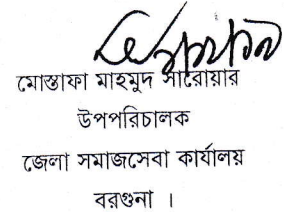 মোস্তাফা মাহমুদ সারোয়ার
উপপরিচালক
জেলা সমাজসেবা কার্যালয়
বরগুনা ।